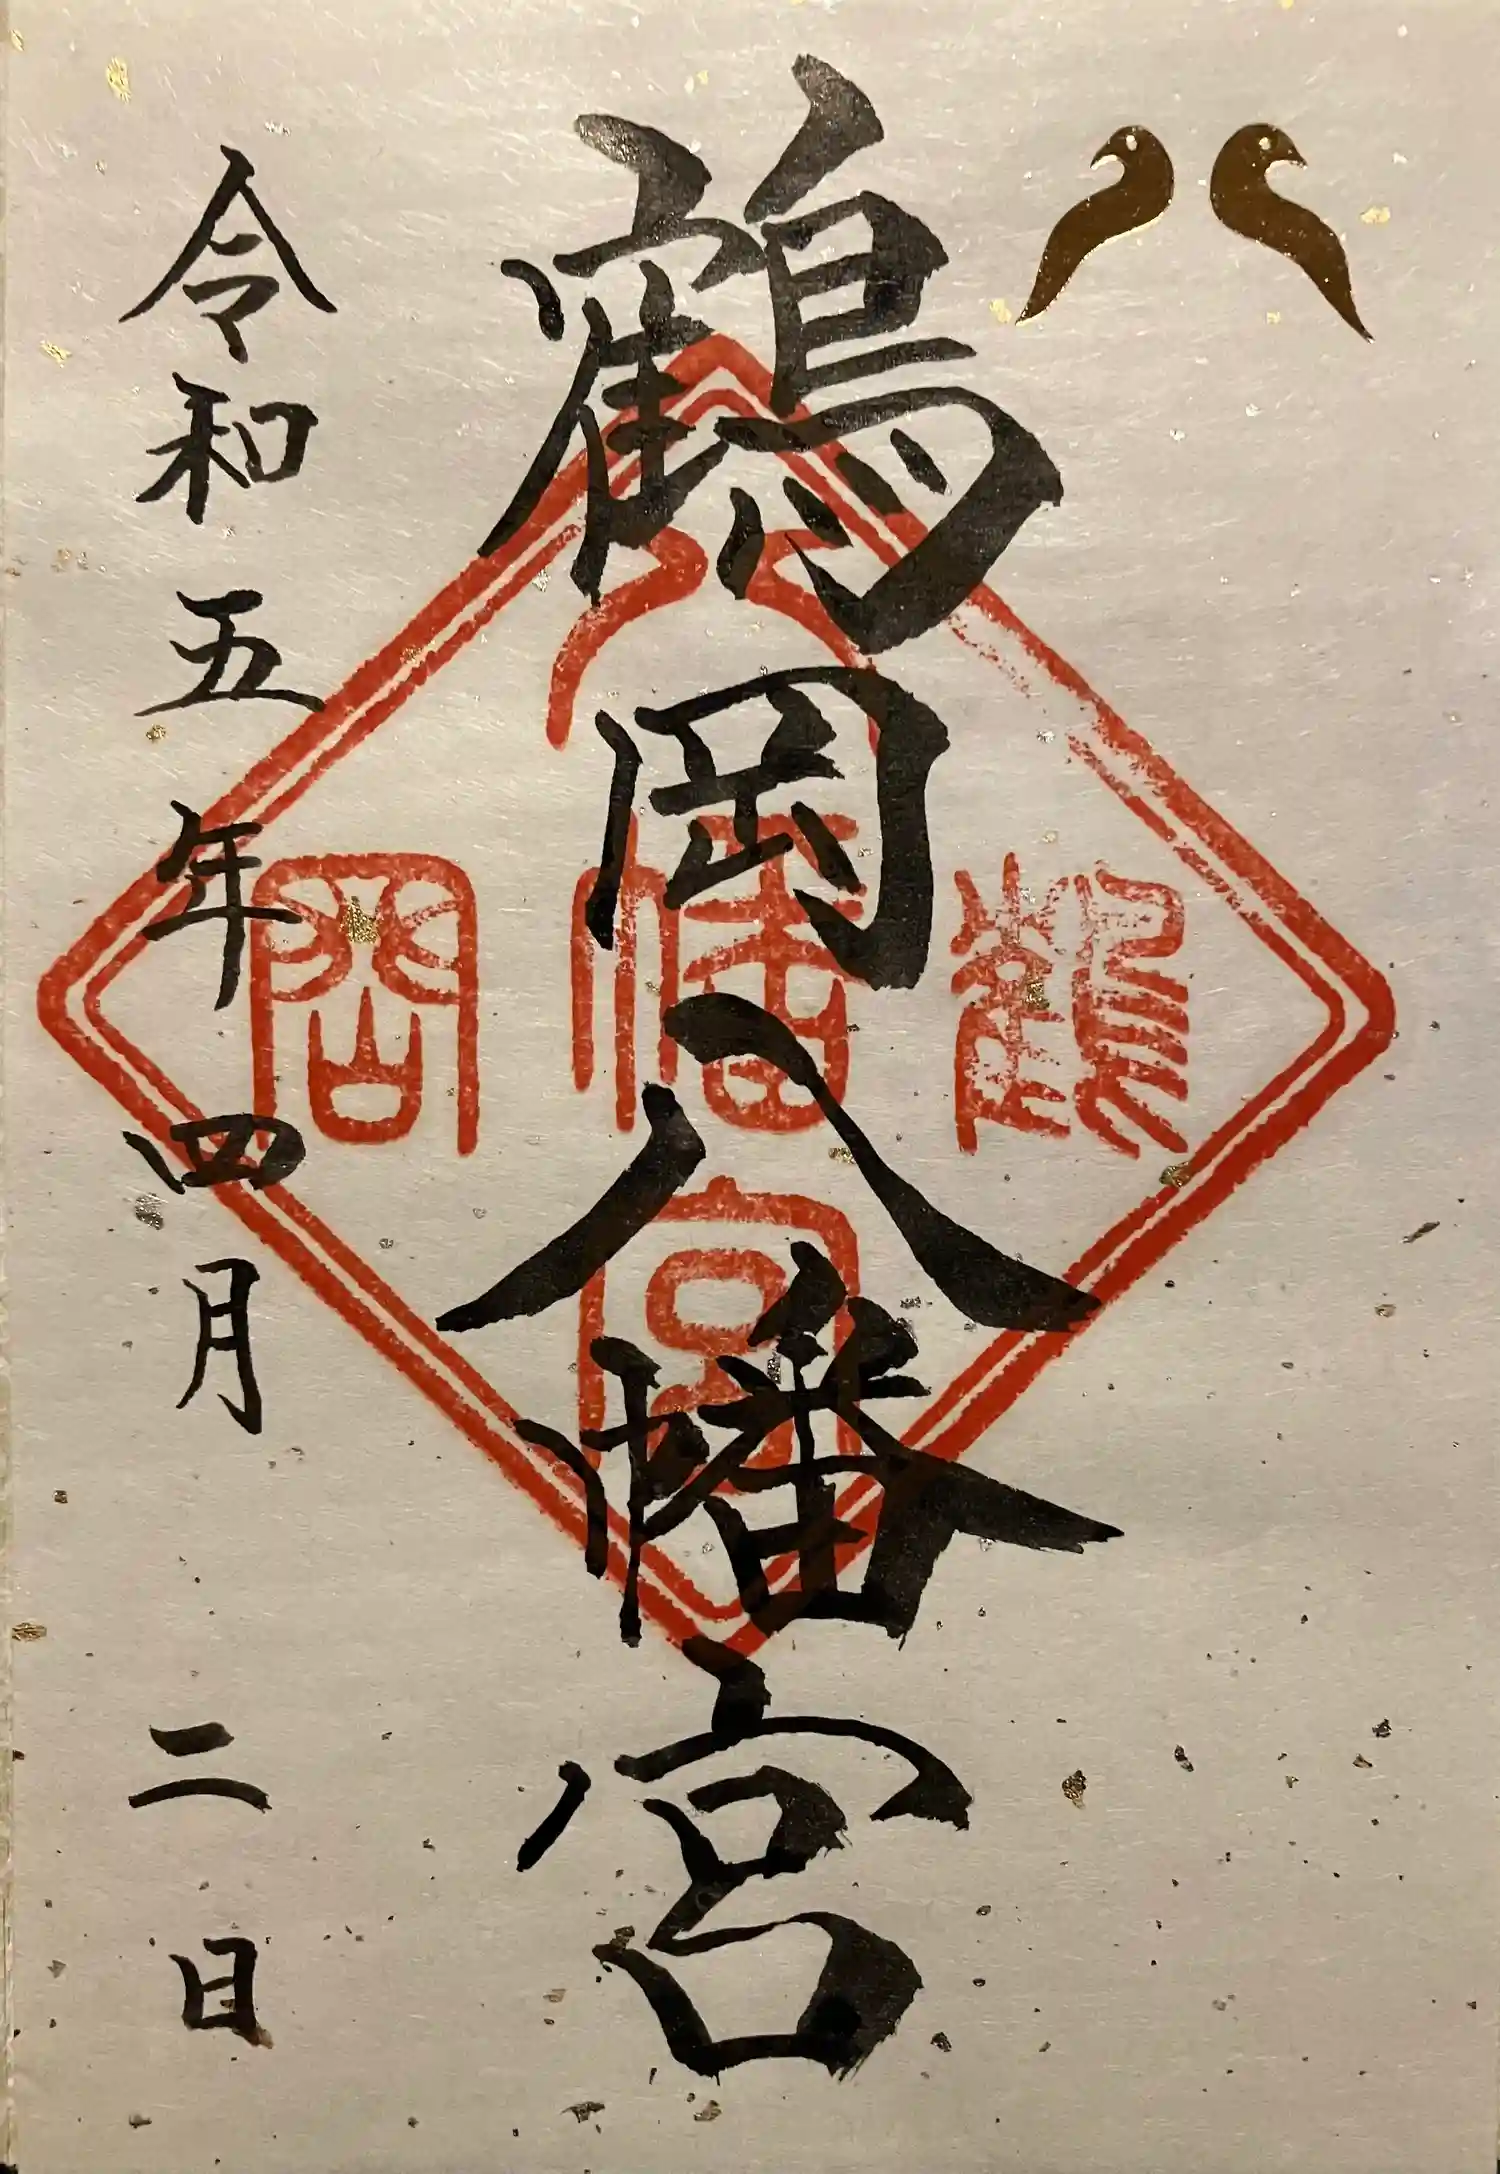 鶴岡八幡宮
鶴岡
八幡宮
令和五年四月二日